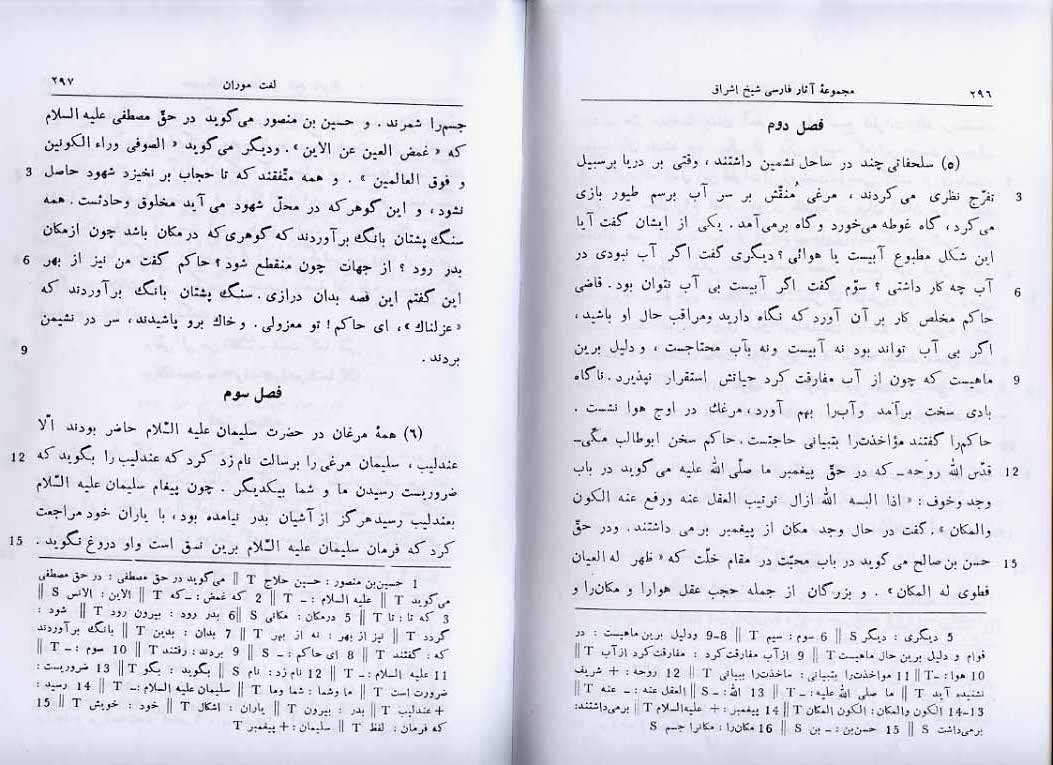 ۲۹۶
مجموعهٔ آثار فارسی شیخ اشراق
فصل دوم
(۵) سلحفاتی چند در ساحل نشیمن داشتند ، وقتی بر دریا برسبیل
تفرّج نظری می‌کردند ، مرغی مُنقّش بر سر آب برسم طیور بازی 3
می‌کرد ، گاه غوطه می‌خورد و گاه برمی‌آمد . یکی از ایشان گفت آیا
این شکل مطبوع آبیست یا هوائی ؟ دیگری گفت اگر آب نبودی در
آب چه کار داشتی ؟ سوّم گفت اگر آبیست بی آب نتوان بود . قاضی 6
حاکم مخلص کار بر آن آورد که نگاه دارید ومراقب حال او باشید ،
اگر بی آب تواند بود نه آبیست ونه بآب محتاجست ، و دلیل برین
ماهیست که چون از آب مفارقت کرد حیاتش استقرار نپذیرد . ناگاه 9
بادی سخت برآمد وآبرا بهم آورد ، مرغك در اوج هوا نشست .
حاکم‌را گفتند مؤاخذت‌را بتبیانی حاجتست . حاکم سخن ابوطالب مکّی ـ
قدّس الله روحه ـ که در حقّ پیغمبر ما صلّی الله علیه می گوید در باب 12
وجد وخوف : « اذا البسه الله ازال ترتیب العقل عنه ورفع عنه الکون
والمکان » . گفت در حال وجد مکان از پیغمبر برمی داشتند . ودر حقّ
حسن بن صالح می گوید در باب محبّت در مقام خلّت که « ظهر له العیان 15
فطوی له المکان » . و بزرگان از جمله حجب عقل هوارا و مکان‌را و
5 دیگری : دیگر S ‖ 6 سوم : سیم T ‖ 8-9 ودلیل برین ماهیست : در
قوام و دلیل برین حال ماهیست T ‖ 9 ازآب مفارقت‌کرد : مفارقت‌کرد ازآب T ‖
10 هوا : ـ T ‖ 11 مواخذت‌را بتبیانی : ماخذت‌را ببیانی T ‖ 12 روحه : + شریف
نشنیده آید T ‖ ما صلی الله علیه : ـ T ‖ 13 الله : ـ S ‖ العقل عنه : ـ عنه T ‖
13-14 الکون والمکان : الکون المکان T ‖ 14 پیغمبر : + علیه‌السلام T ‖ برمی‌داشتند :
برمی‌داشت S ‖ 15 حسن‌بن : ـ بن S ‖ 16 مکان‌را : مکانرا جسم S
لغت موران
۲۹۷
جسم‌را شمرند . و حسین بن منصور می گوید در حقّ مصطفی علیه السلام
که « غمض العین عن الاین » . ودیگر می گوید « الصوفی وراء الکونین
و فوق العالمین » . و همه متّفقند که تا حجاب بر نخیزد شهود حاصل 3
نشود ، و این گوهر که در محلّ شهود می آید مخلوق وحادثست . همه
سنگ‌پشتان بانگ برآوردند که گوهری که درمکان باشد چون ازمکان
بدر رود ؟ از جهات چون منقطع شود ؟ حاکم گفت من نیز از بهر 6
این گفتم این قصه بدان درازی . سنگ پشتان بانگ برآوردند که
« عزلناك » ، ای حاکم ! تو معزولی . وخاك برو پاشیدند ، سر در نشیمن
بردند . 9
فصل سوم
(۶) همهٔ مرغان در حضرت سلیمان علیه السّلام حاضر بودند الّا
عندلیب ، سلیمان مرغی را برسالت نام زد کرد که عندلیب را بگوید که 12
ضروریست رسیدن ما و شما بیکدیگر . چون پیغام سلیمان علیه السّلام
بعندلیب رسید هرگز از آشیان بدر نیامده بود ، با یاران خود مراجعت
کرد که فرمان سلیمان علیه السّلام برین نمق است واو دروغ نگوید . 15
1 حسین‌بن منصور : حسین حلاج T ‖ می‌گوید در حق مصطفی : در حق مصطفی
می‌گوید T ‖ علیه السلام : ـ T ‖ 2 که غمض : ـ که T ‖ الاین : الانس S ‖
3 که تا : تا T ‖ 5 درمکان : مکانی S ‖ 6 بدر رود : بیرون رود T ‖ شود :
گردد T ‖ نیز از بهر : نه از بهر T ‖ 7 بدان : بدین T ‖ بانگ برآوردند
که : گفتند T ‖ 8 ای حاکم : ـ S ‖ 9 بردند : رفتند T ‖ 10 سوم : ـ T ‖
11 علیه السلام : ـ T ‖ 12 نام زد : نام S ‖ بگوید : بگو T ‖ 13 ضروریست :
ضرورت است T ‖ ما وشما : شما وما T ‖ سلیمان علیه السلام : ـ T ‖ 14 رسید :
+ عندلیب T ‖ بدر : بیرون T ‖ یاران : اشکال T ‖ خود : خویش T ‖ 15
که فرمان : لفظ T ‖ سلیمان : + پیغمبر T